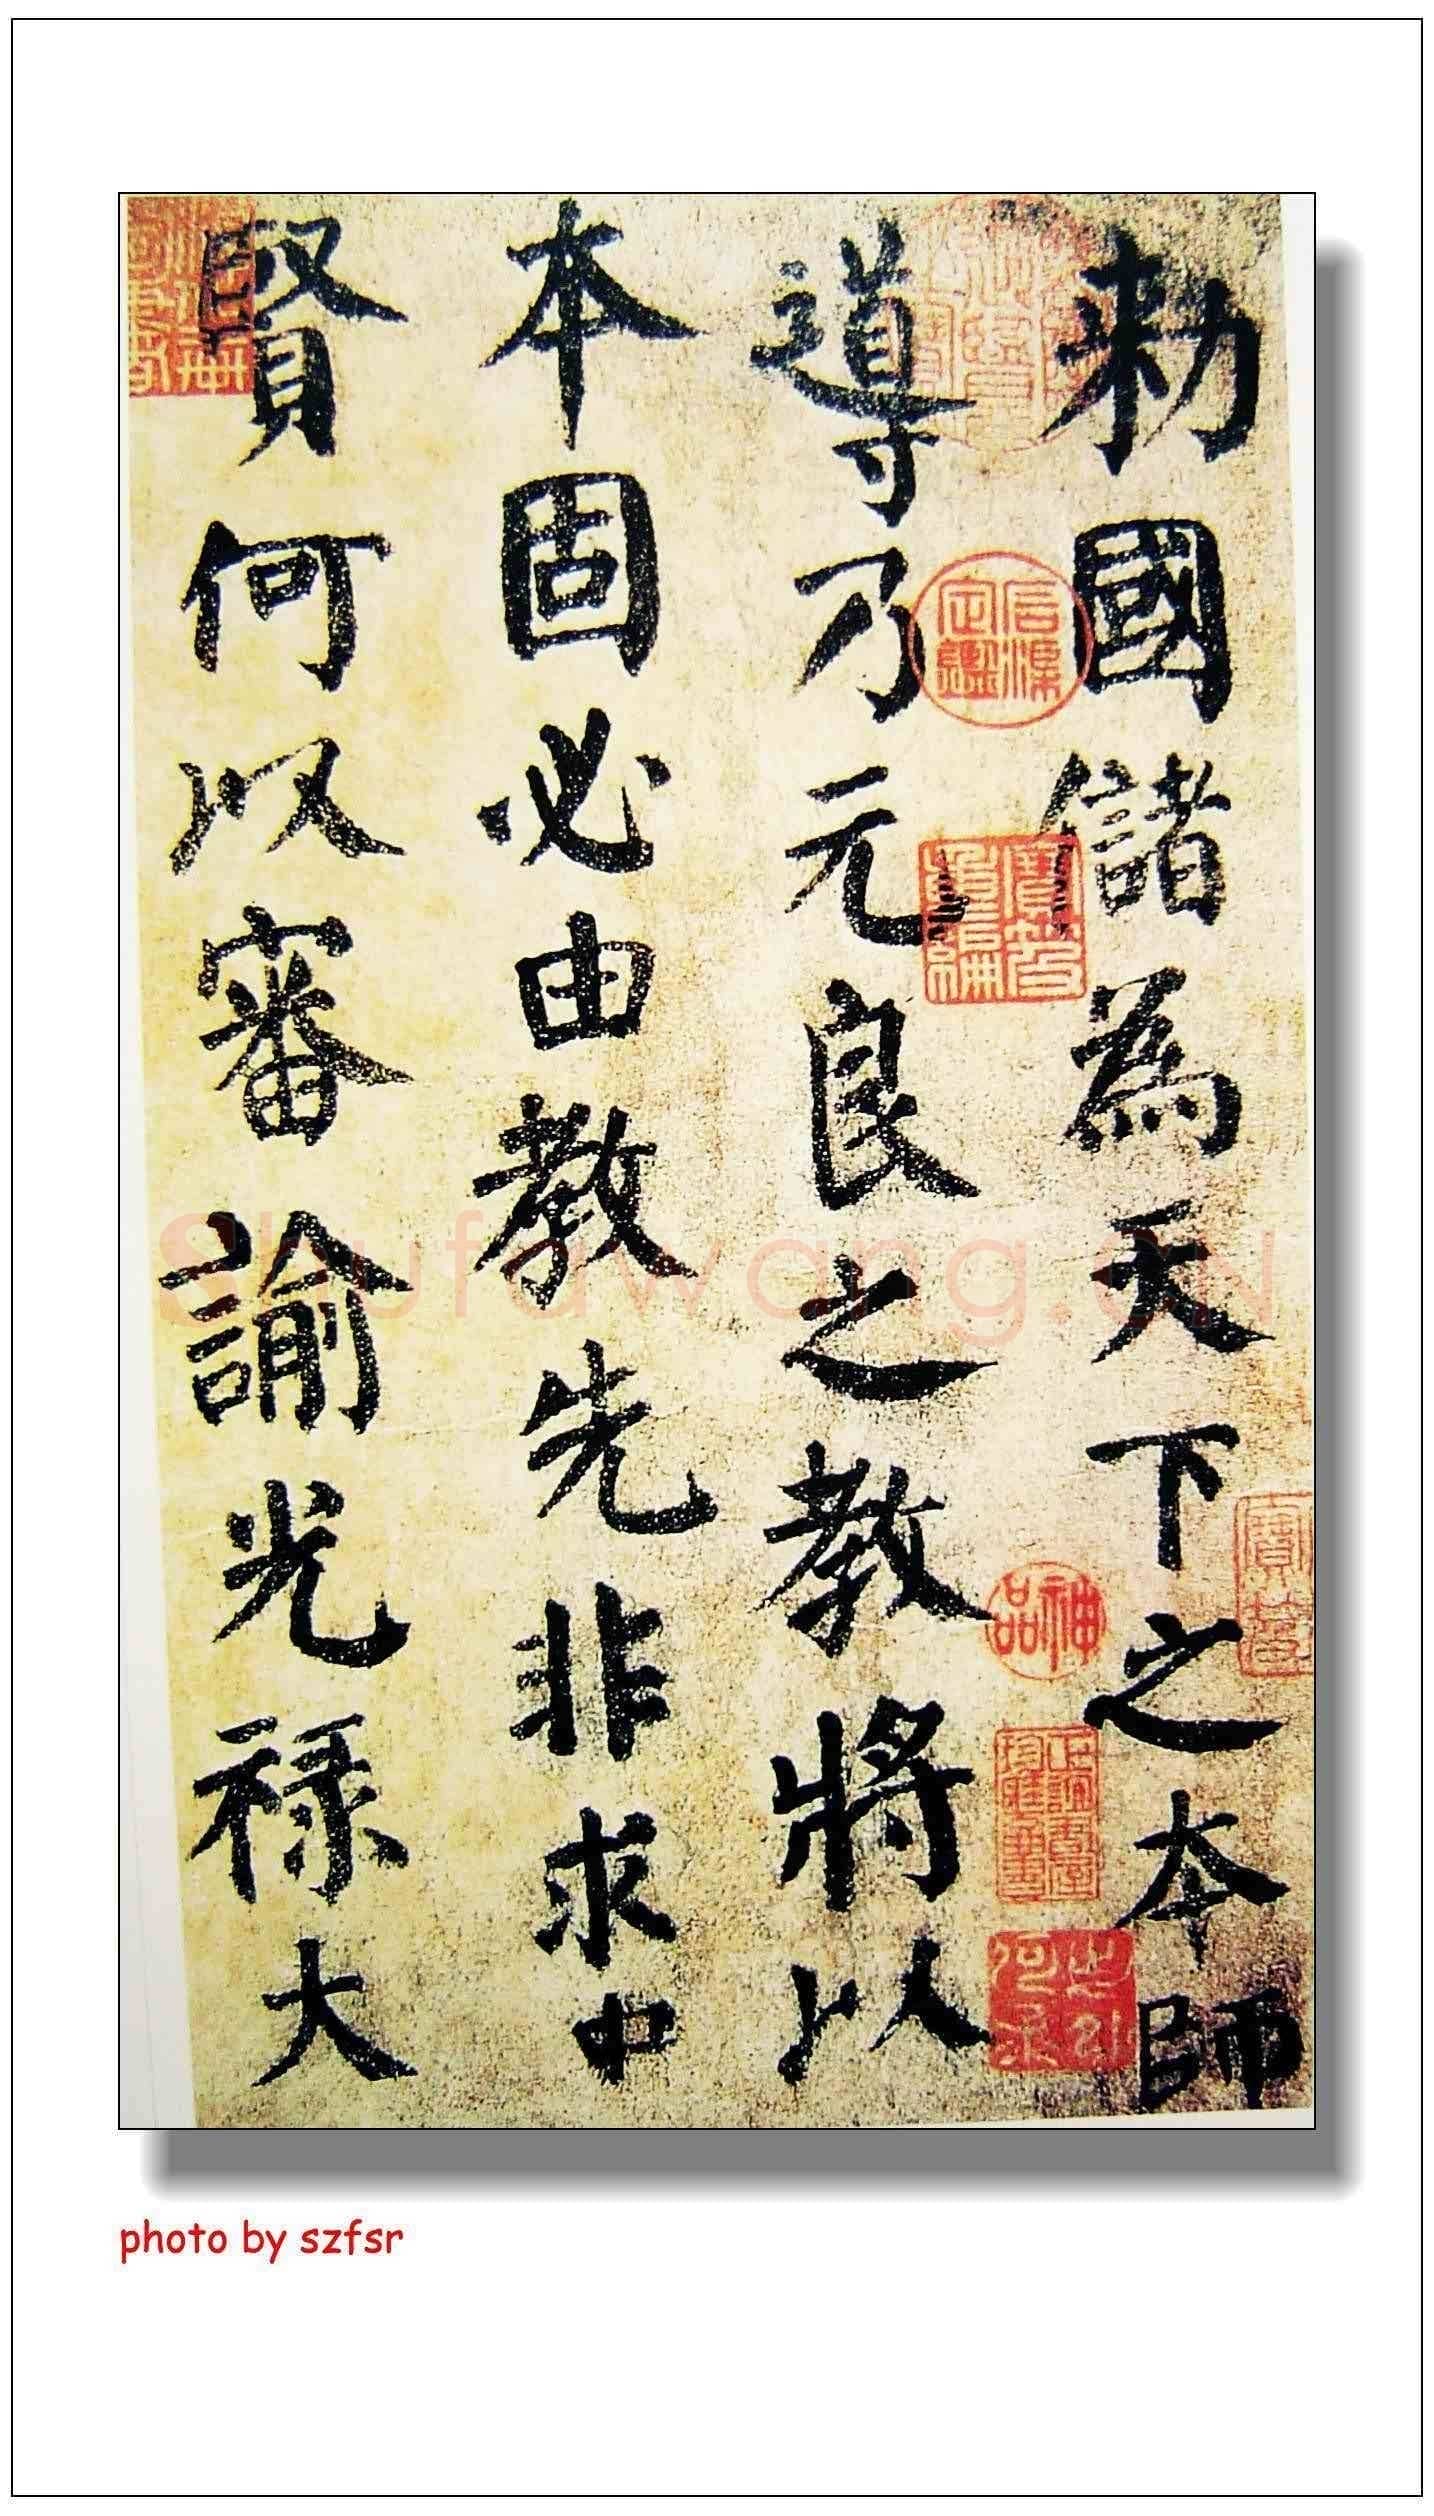 勑國儲為天下之本師
導乃元良之教將以
本固必由教先非求中
賢何以審諭光禄大
神品
Shufawang.CN
photo by szfsr